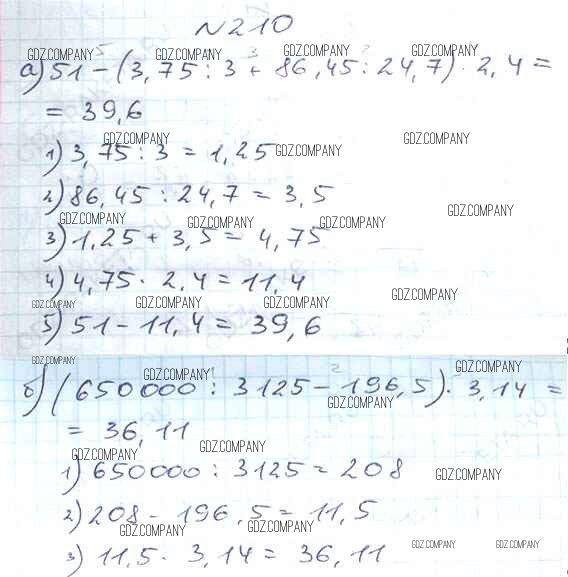 №210
GDZ.COMPANY GDZ.COMPANY GDZ.COMPANY GDZ.COMPANY
5 3 2
а) 51 - (3,75 : 3 + 86,45 : 24,7) · 2,4 =
= 39,6
GDZ.COMPANY GDZ.COMPANY
1) 3,75 : 3 = 1,25 GDZ.COMPANY
2) 86,45 : 24,7 = 3,5
GDZ.COMPANY GDZ.COMPANY GDZ.COMPANY GDZ.COMPANY
3) 1,25 + 3,5 = 4,75
4) 4,75 · 2,4 = 11,4
GDZ.COMPANY GDZ.COMPANY GDZ.COMPANY GDZ.COMPANY
5) 51 - 11,4 = 39,6
GDZ.COMPANY GDZ.COMPANY GDZ.COMPANY
1 2
б) (650000 : 3125 - 196,5) · 3,14 =
GDZ.COMPANY
= 36,11
GDZ.COMPANY GDZ.COMPANY
1) 650000 : 3125 = 208 GDZ.COMPANY
2) 208 - 196,5 = 11,5
GDZ.COMPANY GDZ.COMPANY
3) 11,5 · 3,14 = 36,11 GDZ.COMPANY GDZ.COMPANY